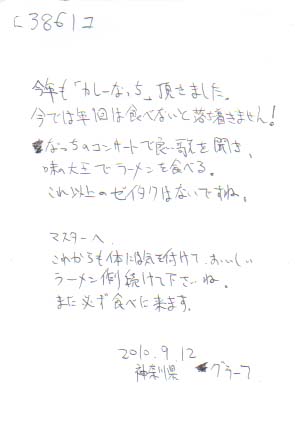 [3861]
今年も「カレーなっち」頂きました。
今では年1回は食べないと落着きません!
なっちのコンサートで良い歌を聞き、
味の大王でラーメンを食べる。
これ以上のゼイタクはないですね。
マスターへ
これからも体には気を付けて、おいしい
ラーメン作り続けて下さいね。
また必ず食べに来ます。
2010.9.12
神奈川県 グラーフ